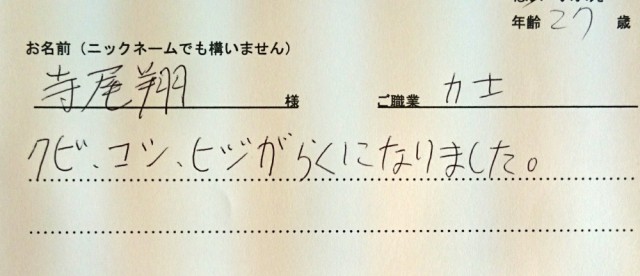 年齢 27 歳
お名前（ニックネームでも構いません）
寺尾翔 様 ご職業 力士
クビ、コシ、ヒジがらくになりました。